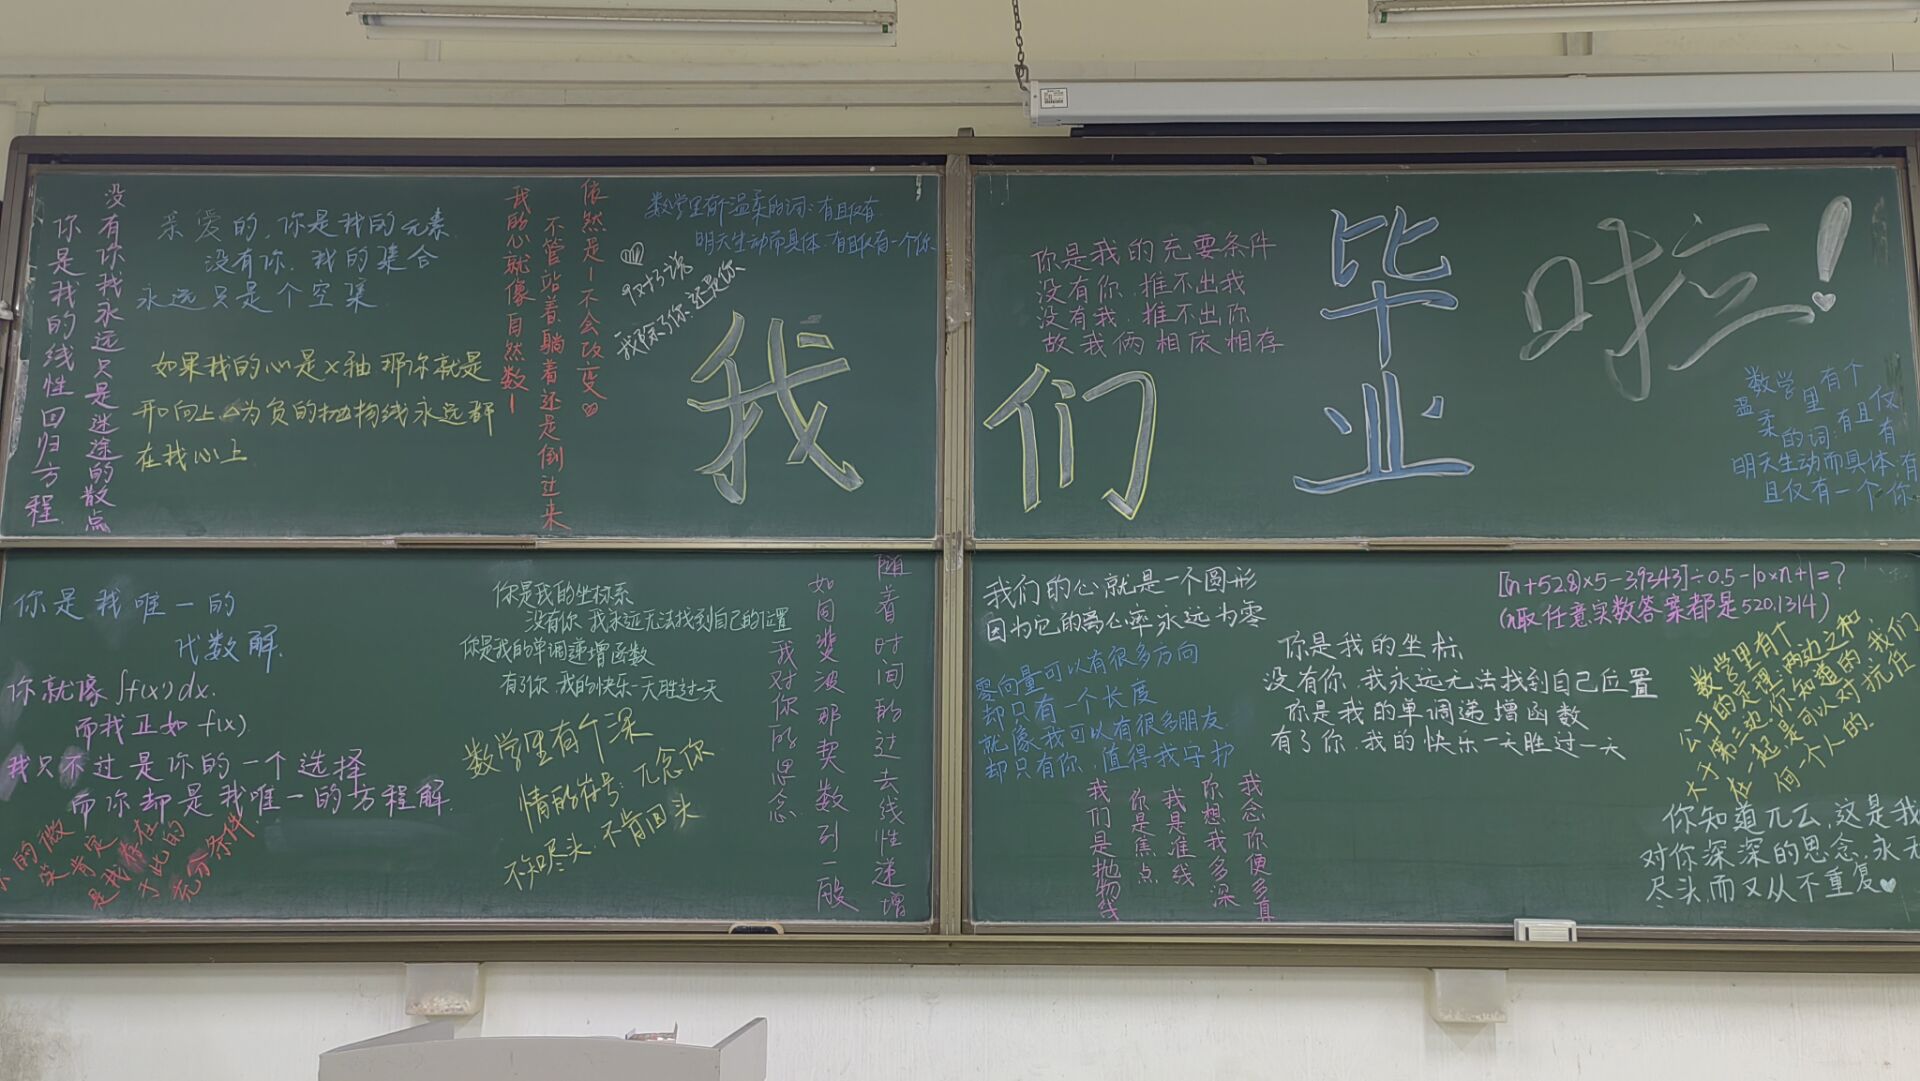 你是我的线性回归方程
没有你我永远只是迷途的散点
亲爱的,你是我的元素
没有你,我的集合
永远只是个空集
如果我的心是x轴那你就是
开口向上△为负的抛物线永远都
在我心上
我的心就像自然数1
不管站着躺着还是倒过来
依然是1不会改变
数学里有个温柔的词:有且仅有
明天生动而具体,有且仅有一个你
我除了你,还是你
我
们
毕
业
啦!
你是我的充要条件
没有你,推不出我
没有我,推不出你
故我俩相依相存
数学里有个
温柔的词:有且仅有
明天生动而具体,有
且仅有一个你
你是我唯一的
代数解.
你就像∫f(x)dx.
而我正如f(x)
我只不过是你的一个选择
而你却是我唯一的方程解.
的微
笑肯定存在
是我
为此的
充分条件
你是我的坐标系
没有你 我永远无法找到自己的位置
你是我的单调递增函数
有了你,我的快乐一天胜过一天
数学里有个深
情的符号:兀念你
不知尽头,不肯回头
随着时间的过去线性递增
如同斐波那契数列一般
我对你的思念
我们的心就是一个圆形
因为它的离心率永远为零
零向量可以有很多方向
却只有一个长度
就像我可以有很多朋友
却只有你,值得我守护
我念你便多真
你想我多深
我是准线
你是焦点
我们是抛物线
[(n+52.8)×5-3.9243]÷0.5-10×n+1=?
(n取任意实数答案都是520.1314)
你是我的坐标
没有你,我永远无法找到自己位置
你是我的单调递增函数
有了你,我的快乐一天胜过一天
数学里有个
公平的定理:两边之和
大于第三边.你知道的,我们
在一起,是可以对抗任
何一个人的.
你知道兀么,这是我
对你深深的思念,永无
尽头,而又从不重复